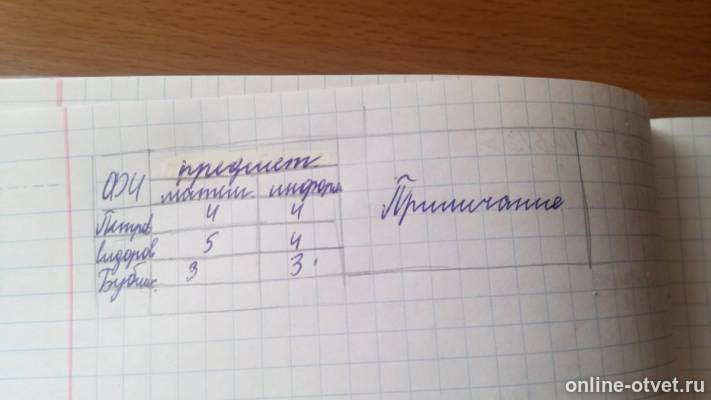 предмет
ФИ матем. информ. Примичание
Петров 4 4
Сидоров 5 4
Бубник. 3 3
online-otvet.ru